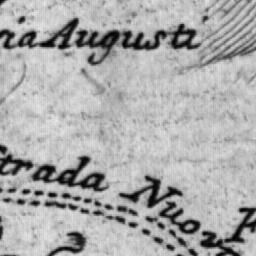 ria Augusti
Strada Nuov